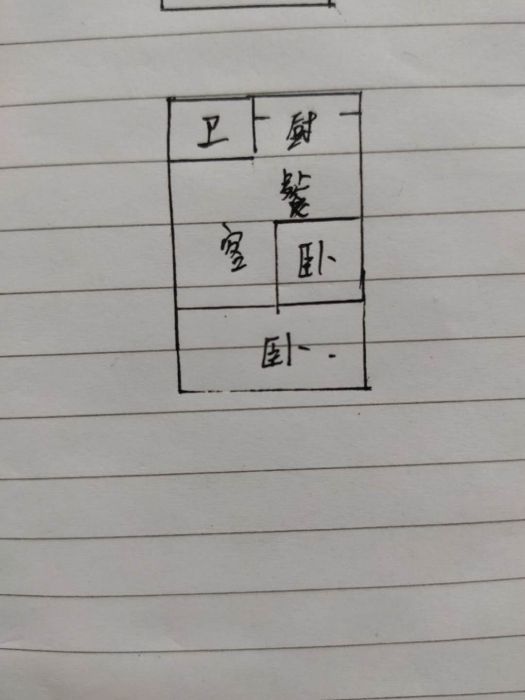 卫 厨
餐
客
卧
卧